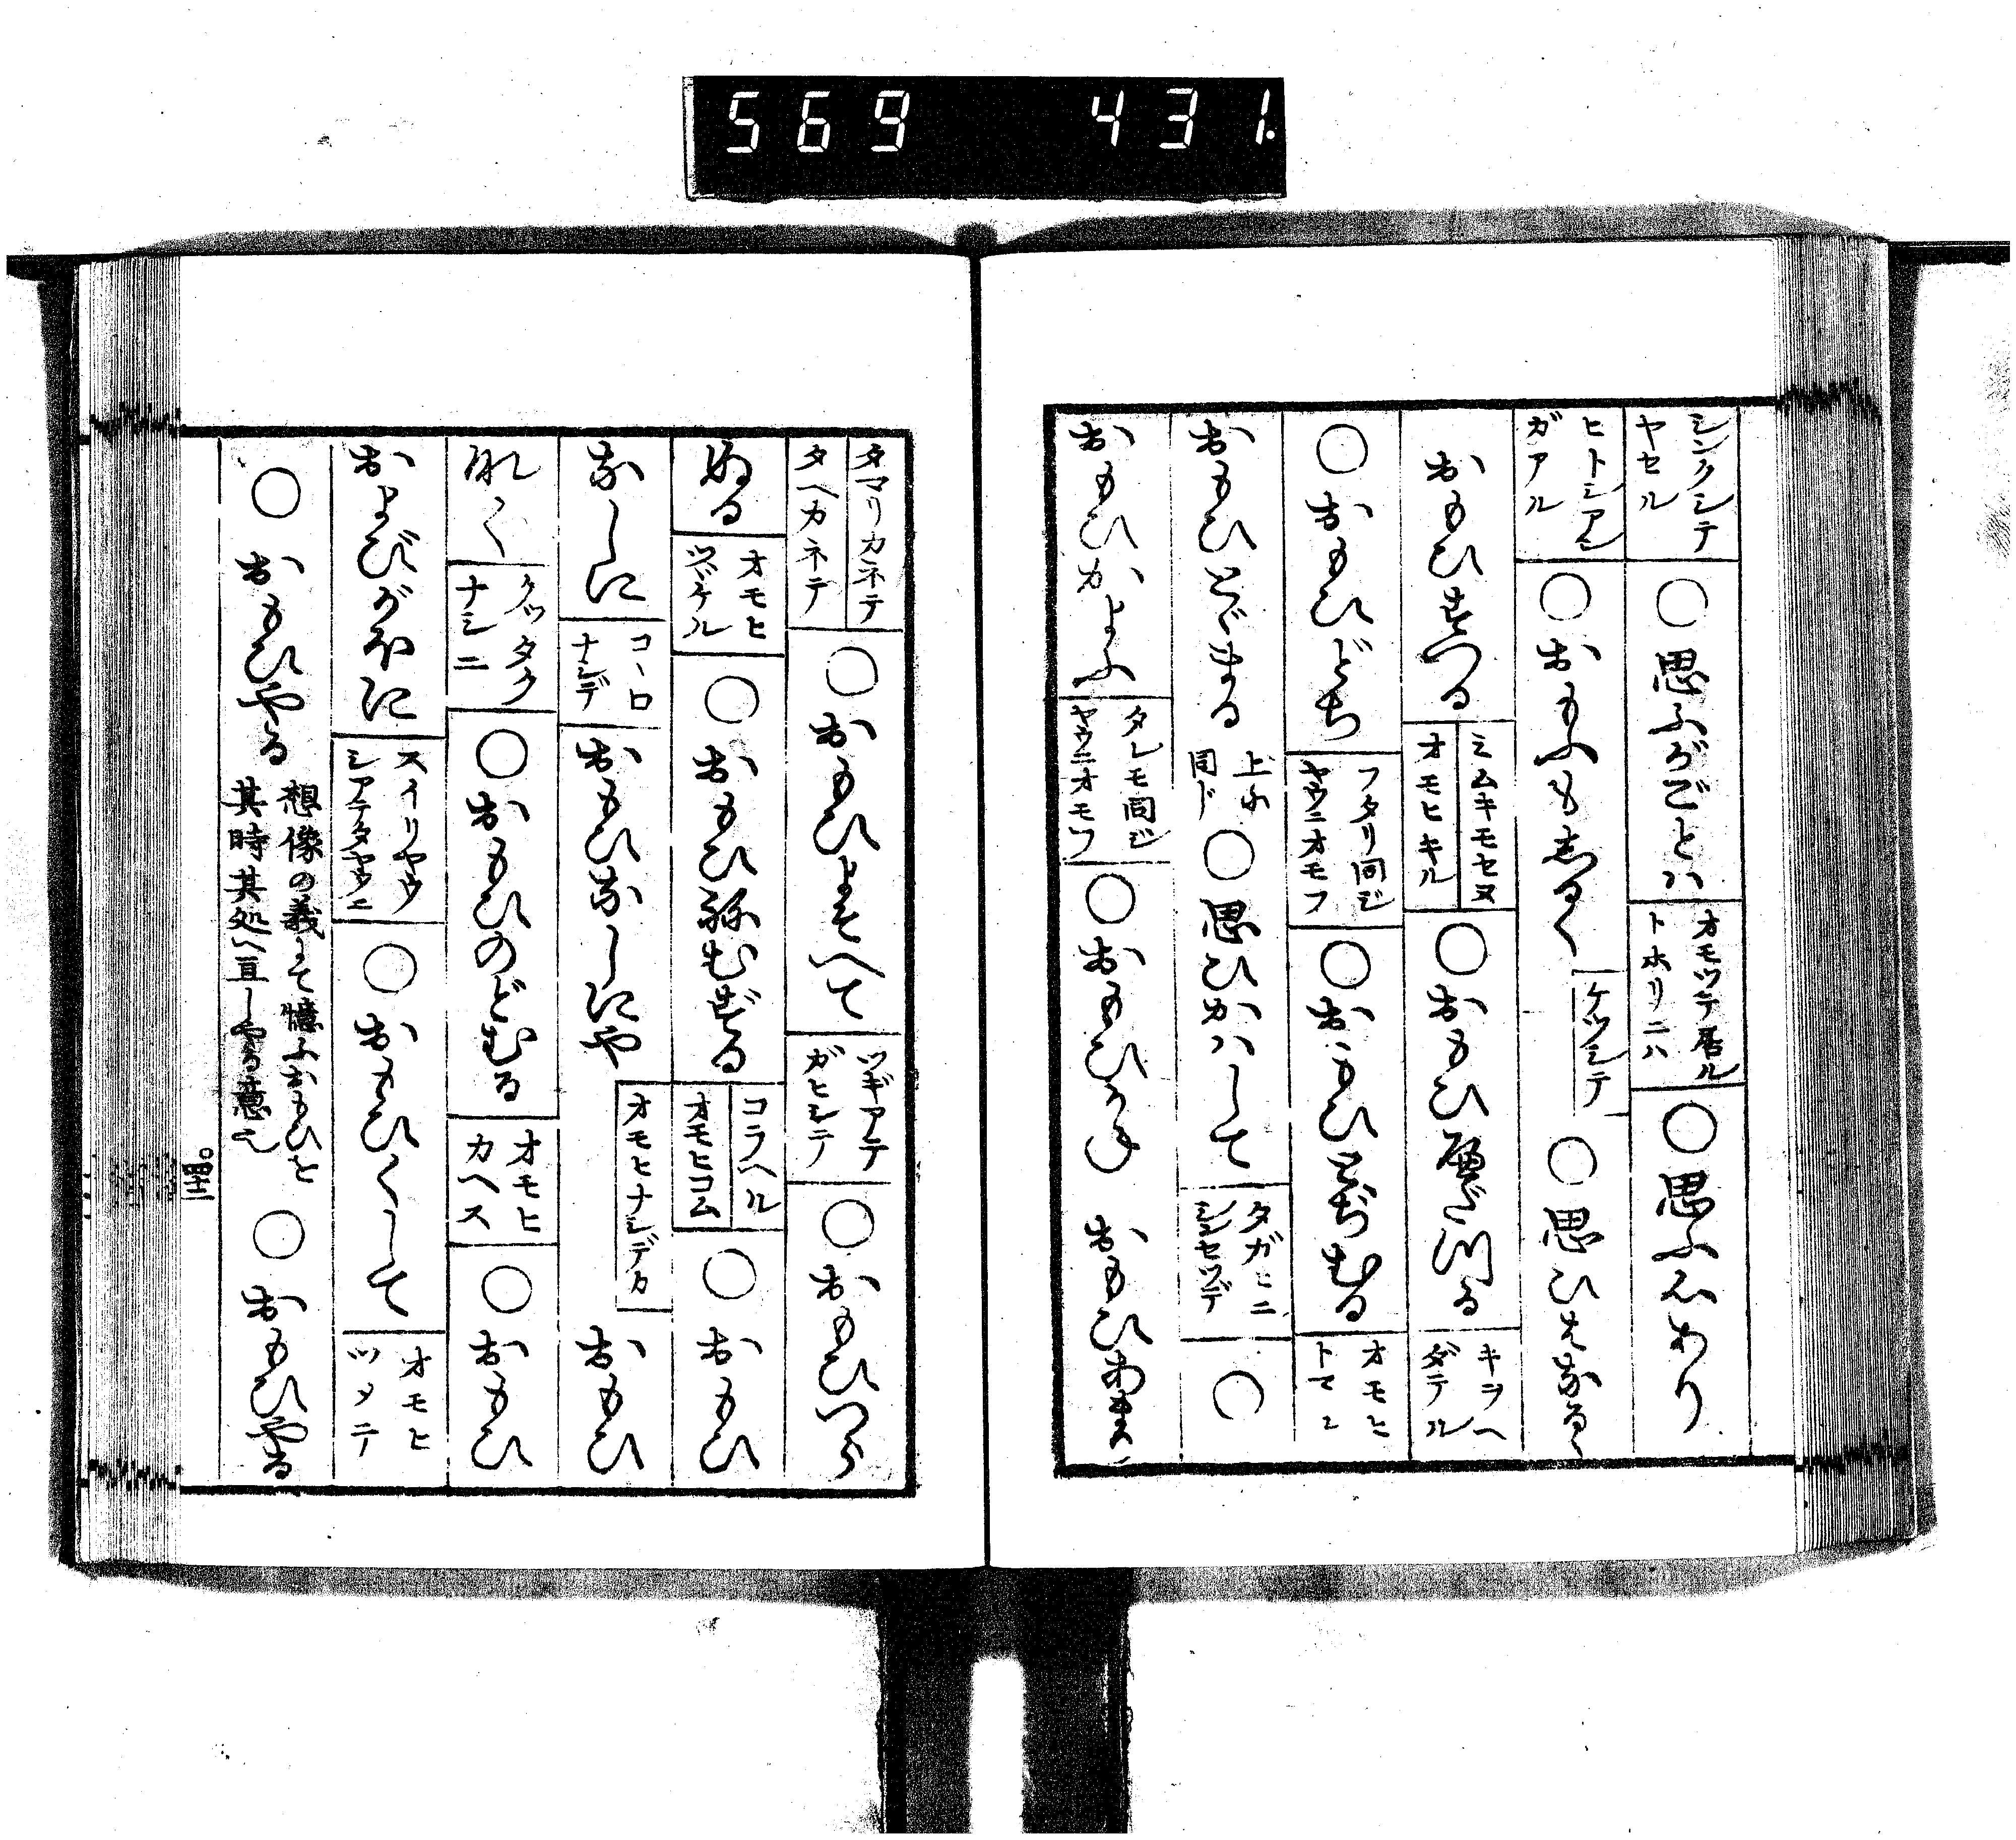 569 431.
シンクシテ
ヤセル
○思ふがごとハ
オモツテ居ル
トホリニハ
○思ふ心あり
ヒトシアン
ガアル
○おもふもしるく
ケツシテ
○思ひ
おもひすつる
ミムキモセヌ
オモヒキル
○おもひ隔つる
キヲヘ
ダテル
○おもひどち
フタリ同ジ
ヤウニオモフ
○おもひとぢむる
オモヒ
トマル
おもひとゞまる
上に
同ド
○思ひかハして
タガヒニ
シンセツデ
○
おもひかよふ
タレモ同ジ
ヤウニオモフ
○おもひかね おもひあま
タマリカネテ
タヘカネテ
○おもひよそへて
ツギアテ
ガヒシテ
○おもひつら
ぬる
オモヒ
ツヾケル
○おもひ務むずる
コラヘル
オモヒコム
○おもひ
なしに
コヽロ
ナシデ
おもひなしにや
オモヒナシデカ
おもひ
れく
クツタク
ナシニ
○おもひのどむる
オモヒ
カヘス
○おもひ
およびがほに
スイリヤウ
シアテタヤウニ
○おもひくして
オモヒ
ツメテ
○おもひやる
想像の義にて憶ふおもひを
其時其処へ亘しやる意也
○おもひやる